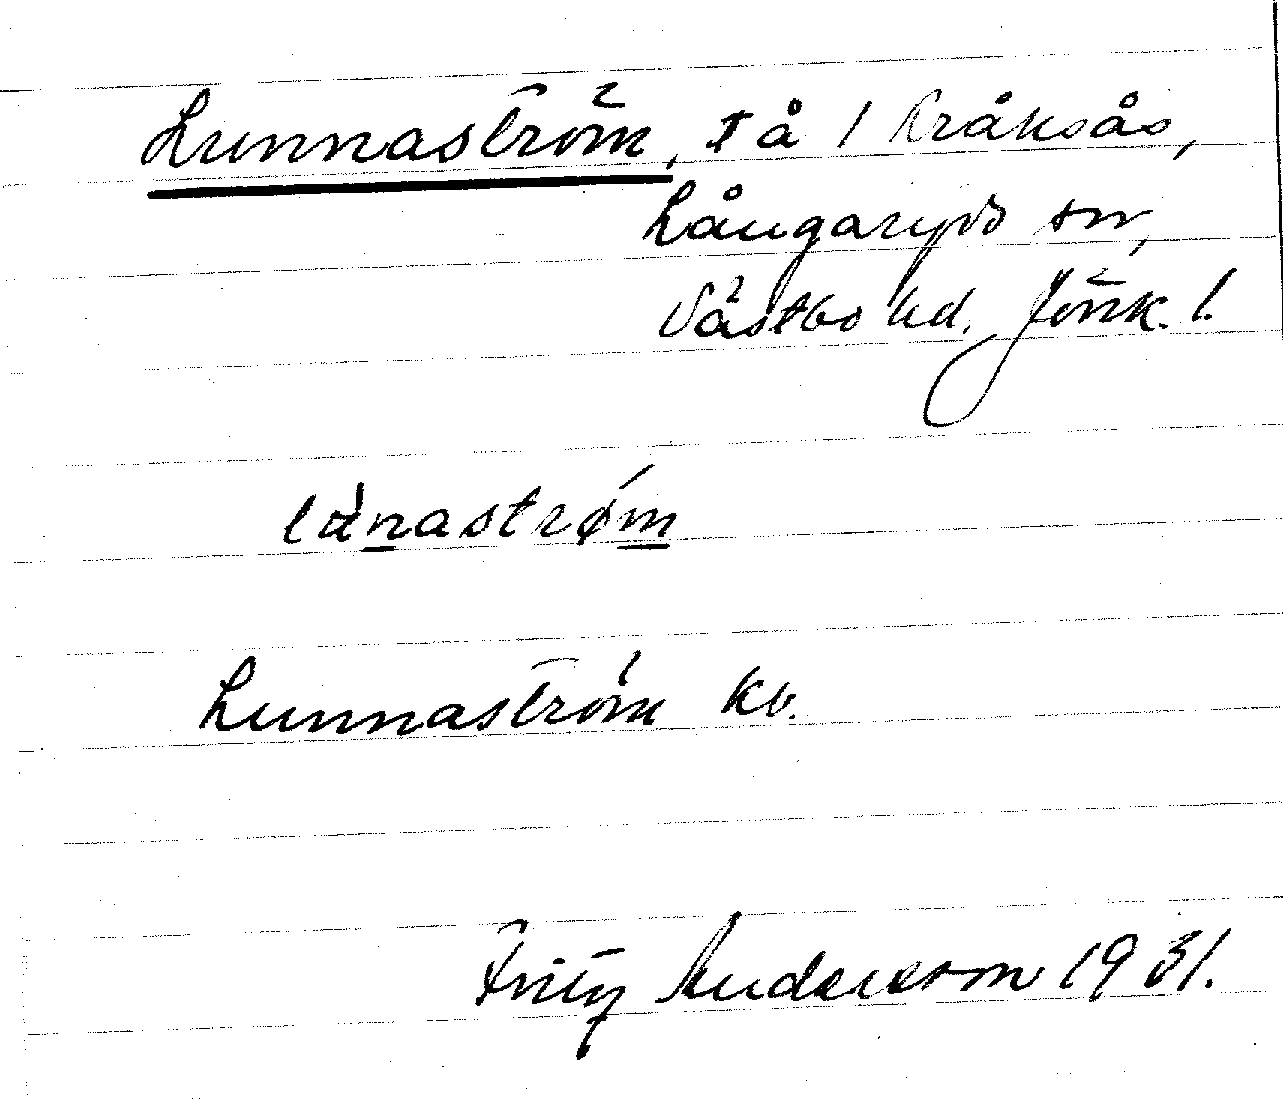 Lunnaström, tå 1 Kråksås,
Långaryds sn,
Västbo hd. Jönk. l.
lu̇nastrǿm
Lunnaström kb.
Fritz Andersson 1931.